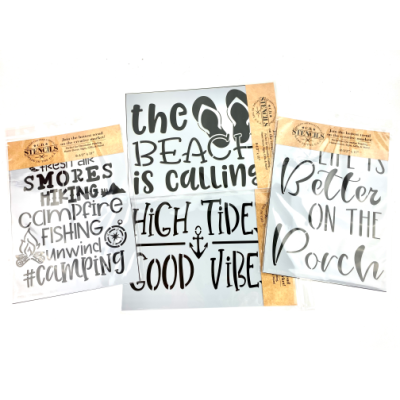 STENCILS
fresh air
SMORES
HIKING
campfire
FISHING
unwind
#camping
the
BEACH
is calling
HIGH TIDES
GOOD VIBES
STENCILS
STENCILS
LIFE IS
Better
ON THE
Porch